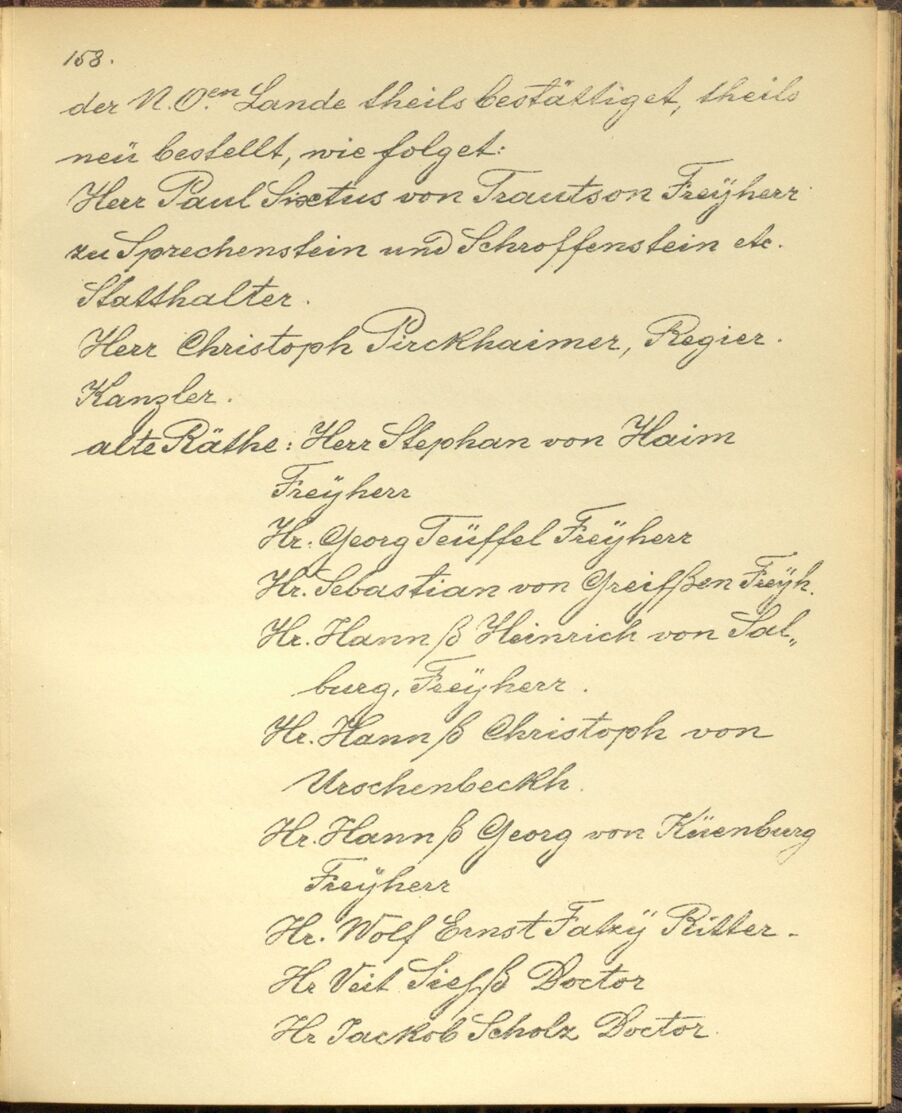 158.
der N.O.en Lande theils bestättiget, theils
neü bestellt, wie folget:
Herr Paul Sixtus von Trautson Freÿherr
zu Sprechenstein und Schroffenstein etc.
Statthalter.
Herr Christoph Pirckhaimer, Regier.
Kanzler.
alte Räthe: Herr Stephan von Haim
Freÿherr
Hr. Georg Teüffel Freÿherr
Hr. Sebastian von Greifßen Freÿh.
Hr. Hannß Heinrich von Sal„
burg, Freÿherr.
Hr. Hannß Christoph von
Urschenbeckh.
Hr. Hannß Georg von Küenburg
Freÿherr
Hr. Wolf Ernst Fatzÿ Ritter.
Hr Veit Doctor
Hr Jackob Scholz Doctor.